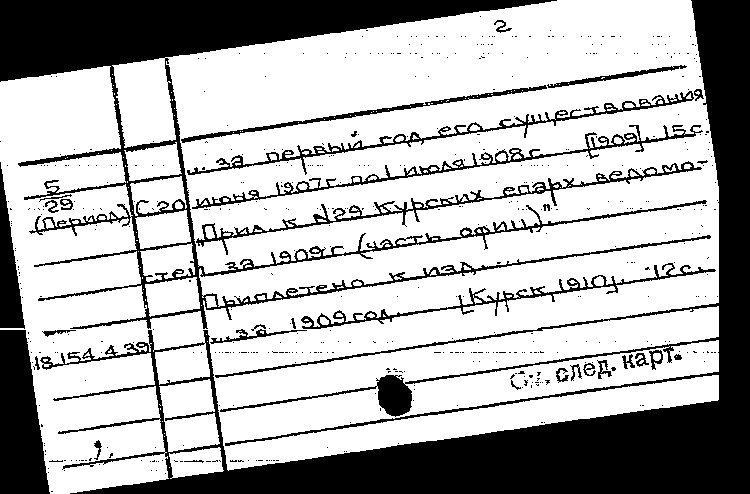 2
... за первый год его существования
5
29
(Период) С 20 июня 1907г. по 1 июля 1908 г. [1909]. 15 с.
„Прил. к №29 Курских епарх. ведомо-
стей за 1909 г. (часть офиц.)".
Приплетено к изд. ...
18.154.4.39 ... за 1909 год. [Курск, 1910]. 12 с.
См. след. карт.